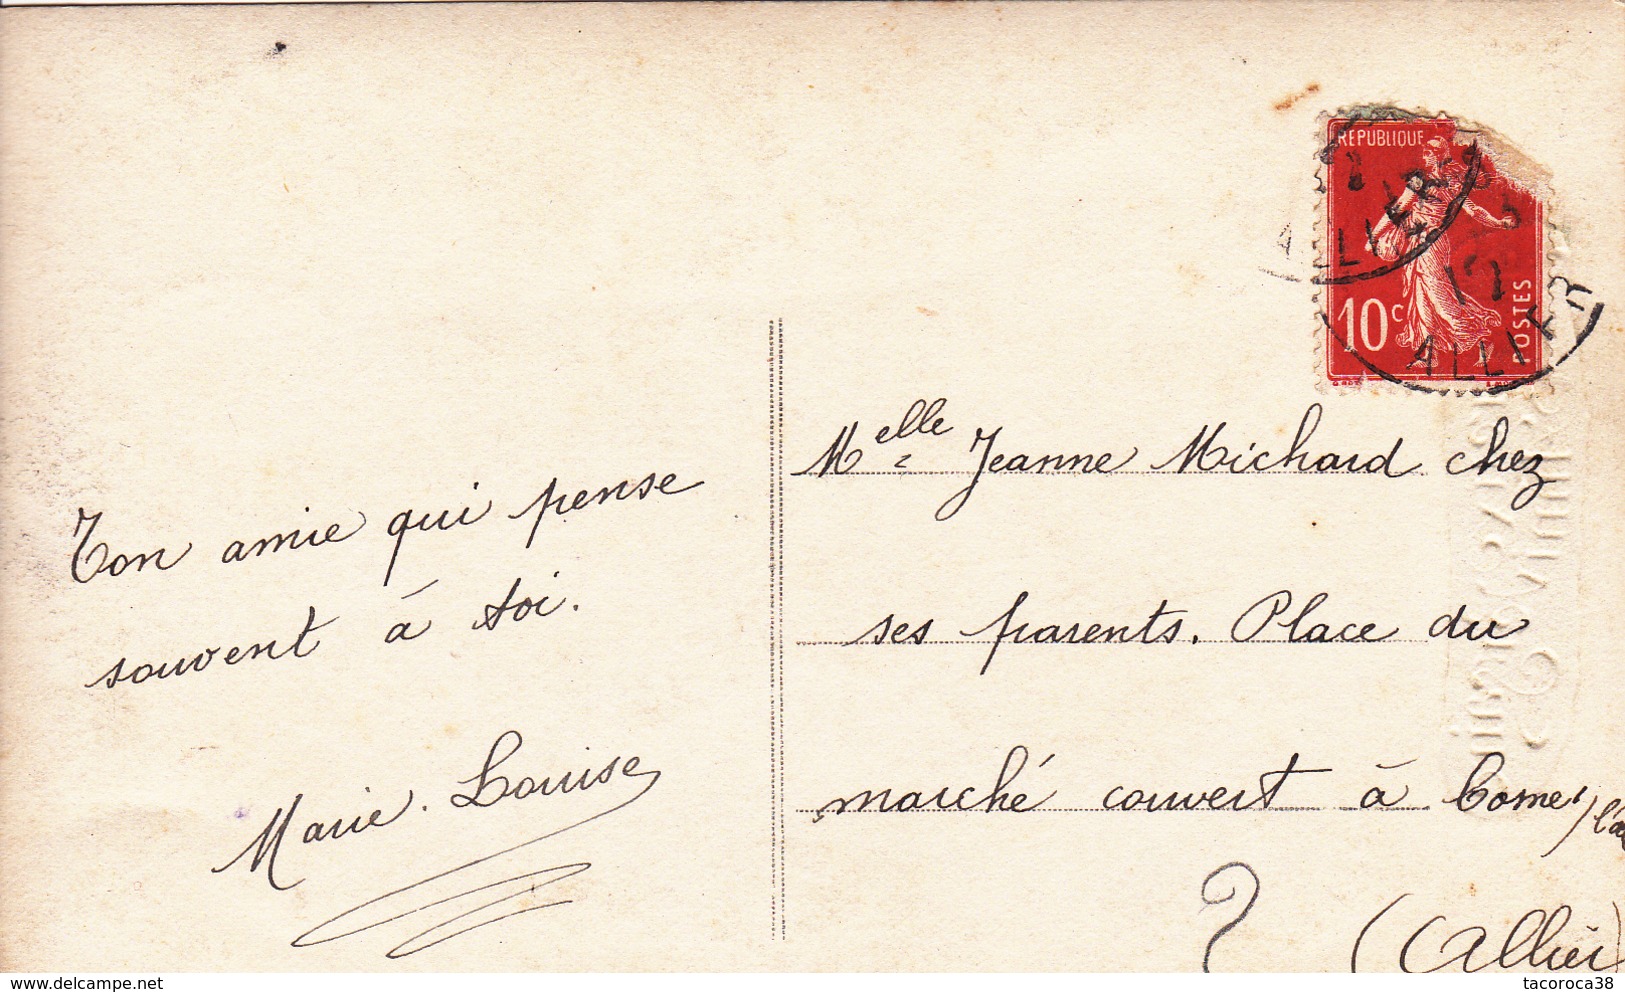 Ton amie qui pense
souvent à toi.
Marie. Louise
REPUBLIQUE
10c
POSTES
ALLIER
ALLIER
Melle Jeanne Michard chez
ses parents. Place du
marché couvert à Comm
(Allier)
?
www.delcampe.net
tacoroca38